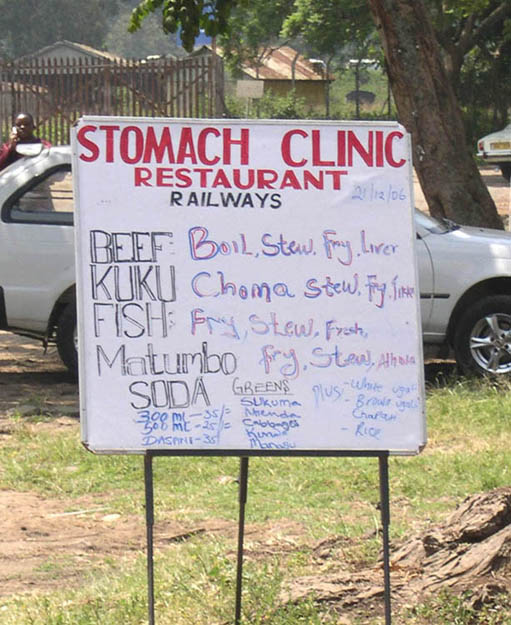 STOMACH CLINIC
RESTAURANT
RAILWAYS
21/12/06
BEEF: Boil, Stew, Fry, Liver
KUKU Choma Stew, Fry,
FISH: Fry, Stew, Fresh,
Matumbo Fry, Stew,
SODA
300 ML - 35/=
500 ML - 25/=
DASANI - 35/=
GREENS
SUKUMA
Cabbages
Kunde
Managu
Plus: - White ugali
- Brown ugali
Chapati
- Rice